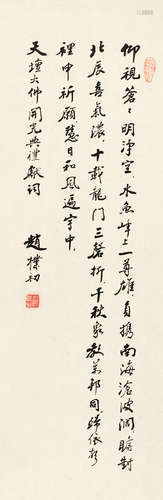 仰視蒼々明淨空木魚峰上一尊雄負攜南海滄波闊瞻對
北辰喜氣濃十載龍門三磬折千秋象教萬邦同歸依
裡申祈願慧日和風遍宇中
天壇大佛開光典禮獻詞
趙樸初